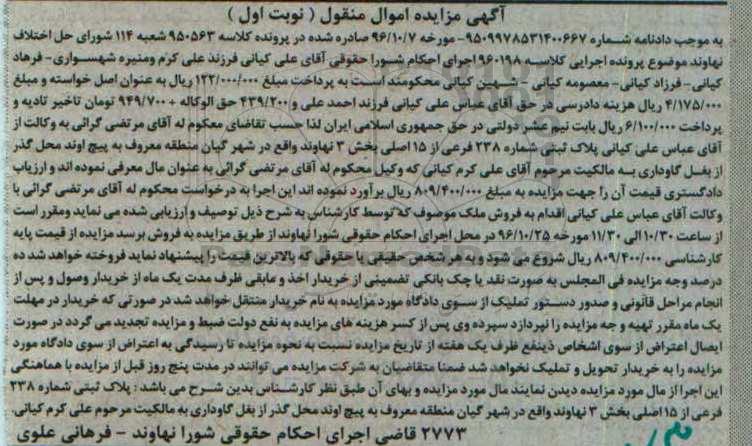 آگهی مزایده اموال منقول ( نوبت اول )
به موجب دادنامه شماره ۹۵۰۹۹۷۸۵۳۱۴۰۰۶۶۷- مورخه ۹۶/۱۰/۷ صادره شده در پرونده کلاسه ۹۵۰۵۶۳ شعبه ۱۱۴ شورای حل اختلاف
نهاوند موضوع پرونده اجرایی کلاسه ۹۶۰۱۹۸ اجرای احکام شورا حقوقی آقای علی کیانی فرزند علی کرم ومنیره شهسواری- فرهاد
کیانی - فرزاد کیانی- معصومه کیانی - شهین کیانی محکومند است به پرداخت مبلغ ۱۲۲/۰۰۰/۰۰۰ ریال به عنوان اصل خواسته و مبلغ
۴/۱۷۵/۰۰۰ ریال هزینه دادرسی در حق آقای عباس علی کیانی فرزند احمد علی و۴۳۹/۲۰۰ حق الوکاله + ۹۴۹/۷۰۰ تومان تاخیر تادیه و
پرداخت ۶/۱۰۰/۰۰۰ ریال بابت نیم عشر دولتی در حق جمهوری اسلامی ایران لذا حسب تقاضای معکوم له آقای مرتضی گرائی به وکالت از
آقای عباس علی کیانی پلاک ثبتی شماره ۲۳۸ فرعی از ۱۵ اصلی بخش ۳ نهاوند واقع در شهر گیان منطقه معروف به پیچ اوند محل گذر
از بغل گاوداری به مالکیت مرحوم آقای علی کرم کیانی که وکیل محکوم له آقای مرتضی گرائی به عنوان مال معرفی نموده اند و ارزیاب
دادگستری قیمت آن را جهت مزایده به مبلغ ۸۰۹/۴۰۰/۰۰۰ ریال برآورد نموده اند این اجرا به درخواست محکوم له آقای مرتضی گرائی با
وکالت آقای عباس علی کیانی اقدام به فروش ملک موصوف که توسط کارشناس به شرح ذیل توصیف و ارزیابی شده می نماید ومقرر است
از ساعت ۱۰/۳۰ الی ۱۱/۳۰ مورخه ۹۶/۱۰/۲۵ در محل اجرای احکام حقوقی شورا نهاوند از طریق مزایده به فروش برسد مزایده از قیمت پایه
کارشناسی ۸۰۹/۴۰۰/۰۰۰ ریال شروع می شود و به هر شخص حقیقی یا حقوقی که بالاترین قیمت را پیشنهاد نماید فروخته خواهد شد ده
درصد وجه مزایده فی المجلس به صورت نقد یا چک بانکی تضمینی از خریدار اخذ و مابقی ظرف مدت یک ماه از خریدار وصول و پس از
انجام مراحل قانونی و صدور دستور تملیک از سوی دادگاه مورد مزایده به نام خریدار منتقل خواهد شد در صورتی که خریدار در مهلت
یک ماه مقرر تهیه و جه مزایده را نپردازد سپرده وی پس از کسر هزینه های مزایده به نفع دولت ضبط و مزایده تجدید می گردد در صورت
ایصال اعتراض از سوی اشخاص ذینفع ظرف یک هفته از تاریخ مزایده نسبت به نحوه مزایده تا رسیدگی به اعتراض از سوی دادگاه مورد
مزایده را به خریدار تحویل و تملیک نخواهد شد ضمنا متقاضیان به شرکت مزایده می توانند در مدت پنج روز قبل از مزایده با هماهنگی
این اجرا از مال مورد مزایده دیدن نمایند مال مورد مزایده و بهای آن طبق نظر کارشناس بدین شرح می باشد : پلاک ثبتی شماره ۲۳۸
فرعی از ۱۵ اصلی بخش ۳ نهاوند واقع در شهر گیان منطقه معروف به پیچ اوند محل گذر از بغل گاوداری به مالکیت مرحوم علی کرم کیانی.
۲۷۷۳ قاضی اجرای احکام حقوقی شورا نهاوند - فرهانی علوی